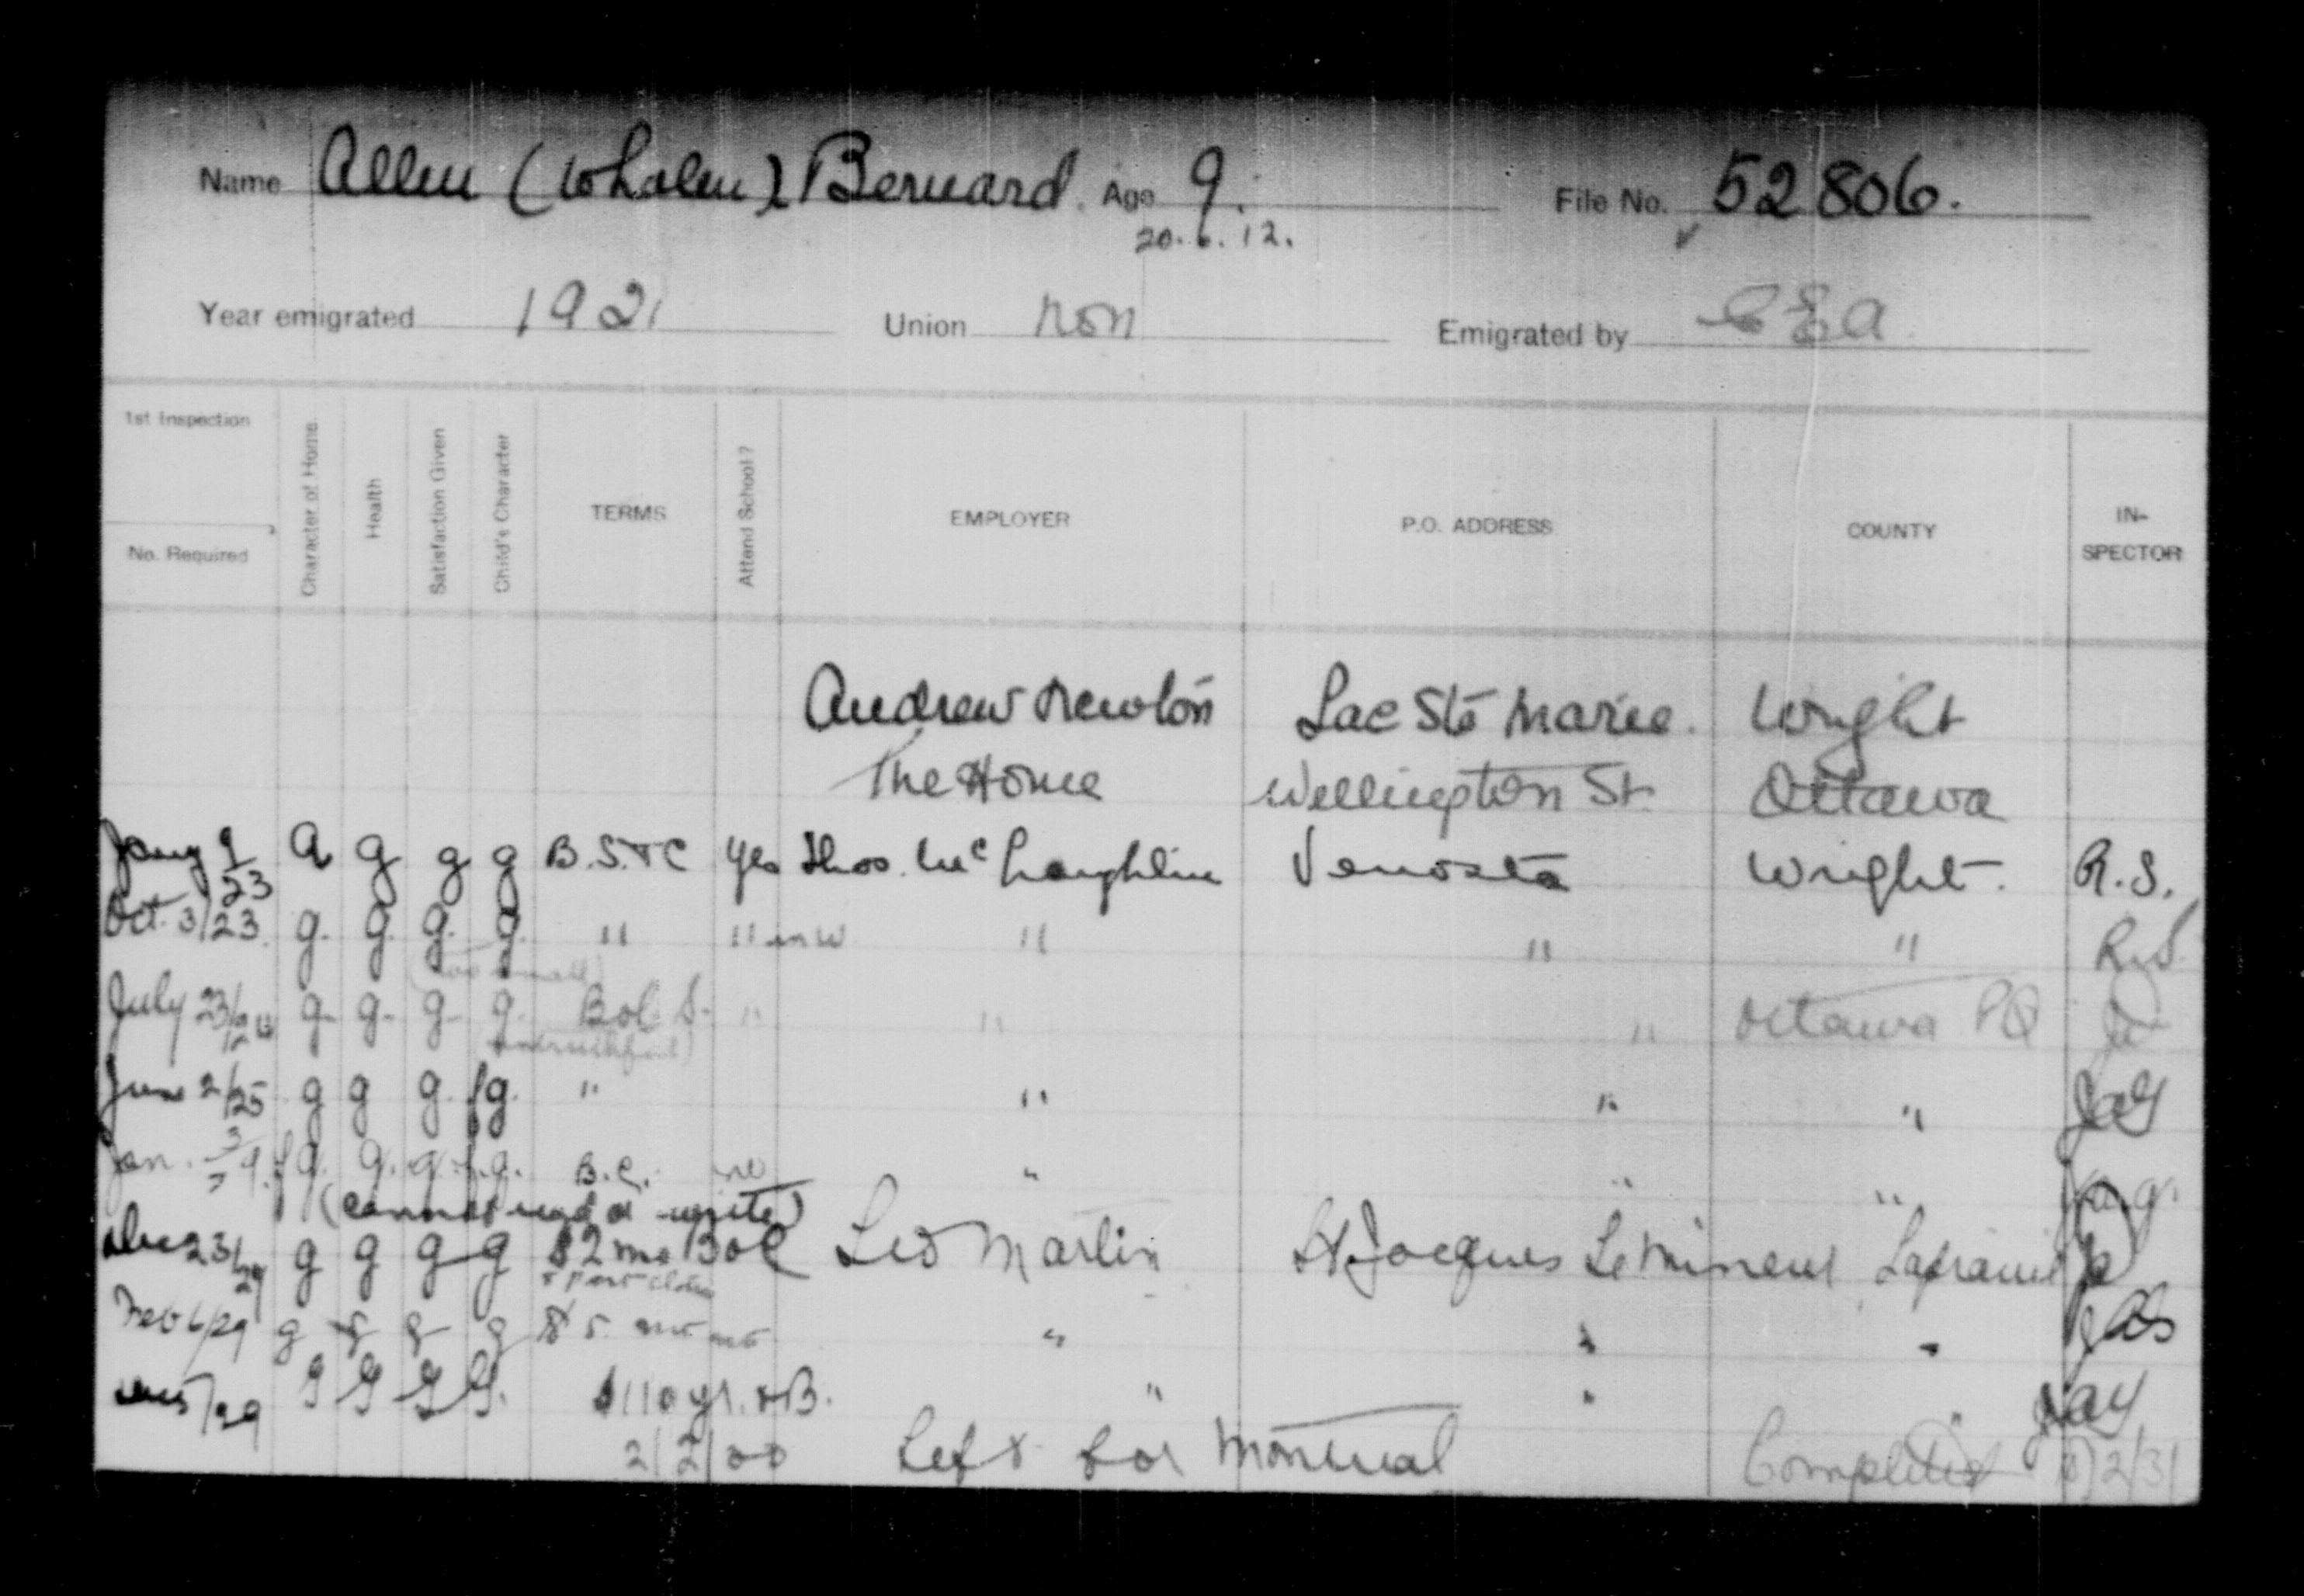 Name Allen (Whalen) Bernard. Age 9. File No. 52806.
20.6.12.
Year emigrated 1921 Union non Emigrated by CEA
1st Inspection
No. Required
Character of Home.
Health
Satisfaction Given
Child's Character
TERMS
Attend School?
EMPLOYER
P.O. ADDRESS
COUNTY
IN-
SPECTOR
Andrew Newton Lac Ste Marie. Wright
The Home Wellington St. Ottawa
Jany 9/23 a g g g B.S.&C Yes Thos. McLaughlin Venosta Wright. R.S.
Oct. 3/23 g. g. g. g. " " in W " " " R.S.
(too small)
July 23/24 g. g. g. g. B&C S. " " " Ottawa PQ
(untruthful)
June 2/25 g g g. fg. " " " " JAG
Jan. fg. g. g. f.g. B.C. no " " " JAG.
(cannot read or write)
23/29 g g g g $2 mo B&C Leo Martin St Jacques Le Mineur Laprairie
Feb 6/29 g g g g $5 " " "
5/29 g g g g. $110 yr. &B. " " " JAG
Left for Montreal Completed 2/31